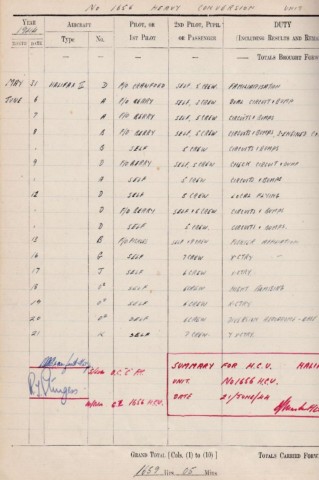 No 1656 HEAVY CONVERSION UNIT
YEAR 1944 AIRCRAFT PILOT, OR 1ST PILOT 2ND PILOT, PUPIL OR PASSENGER DUTY (INCLUDING RESULTS AND REMA
MONTH DATE Type No.
— TOTALS BROUGHT FORW
MAY 31 HALIFAX D P/O CRAWFORD SELF, 5 CREW. FAMILIARISATION
JUNE 6 A F/O BERRY SELF, 5 CREW DUAL CIRCUIT & BUMP
7 A F/O BERRY SELF, 5 CREW CIRCUITS & BUMPS
8 B F/O BERRY SELF, 5 CREW CIRCUITS & BUMPS,
B SELF 5 CREW CIRCUITS & BUMPS
9 D F/O BERRY SELF, 5 CREW. CHECK CIRCUIT & BUMP
A SELF 5 CREW CIRCUITS & BUMPS
12 D SELF 5 CREW LOCAL FLYING
D F/O BERRY SELF & 5 CREW. CIRCUITS & BUMPS
D SELF 5 CREW CIRCUITS & BUMPS.
15 B SELF & CREW FIGHTER AFFILIATION
16 G SELF 7 CREW X-CTRY
17 J SELF 6 CREW X-CTRY
18 SELF 6 CREW NIGHT
19 SELF 6 CREW X-CTRY
20 SELF 6 CREW
21 K SELF 7 CREW X-CTRY
SUMMARY FOR H.C.U. HALI
UNIT No 1656 H.C.U.
DATE 21/JUNE/44
O.C. "C" FLT.
1656 H.C.U.
GRAND TOTAL [Cols. (1) to (10)]
1659 Hrs 05 Mins
TOTALS CARRIED FORW